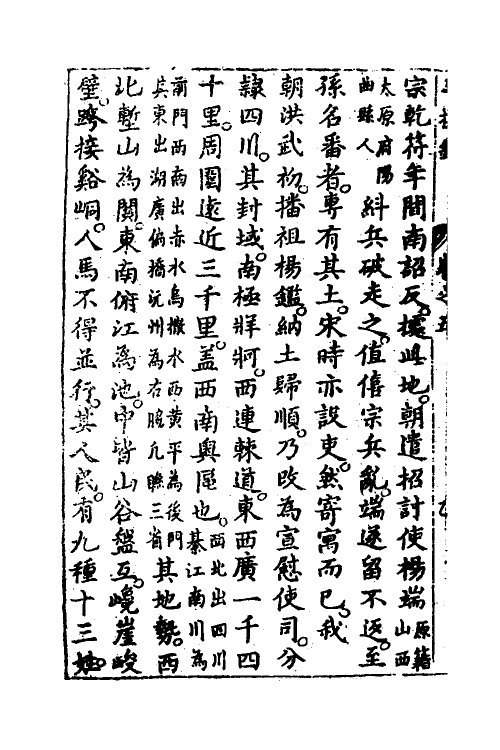 宗乾符年間南詔反。據此地。朝遣招討使楊端原籍山西
太原府陽曲縣人 糾兵破走之。值僖宗兵亂。端遂留不返。至
孫名番者。專有其土。宋時亦設吏。然寄寓而已。我
朝洪武初。播祖楊鑑。納土歸順。乃改為宣慰使司。分
隸四川。其封域。南極牂牁。西連棘道。東西廣一千四
十里。周圍遠近三千里。蓋西南輿區也。西北出四川綦江南川為
前門西南出赤水烏撒水西黃平為後門其東出湖廣偏橋沅州為右腋凡瞧三省 其地勢。西
北塹山為關。東南俯江為池。中皆山谷盤互。巉崖峻
壁。跨接谿峒。人馬不得並行。其人民。有九種十三姓。